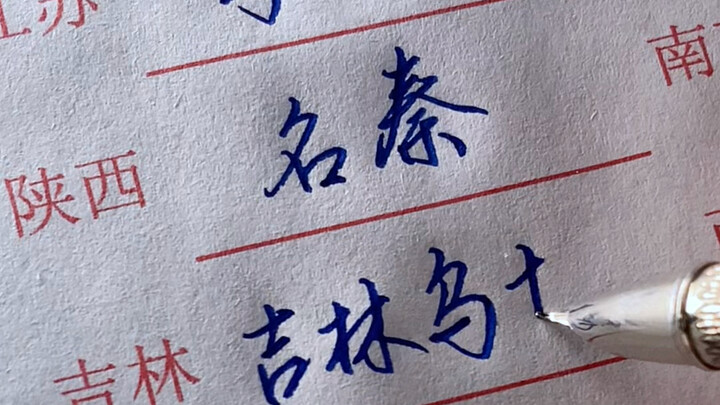 江苏
陕西 名秦 南
吉林 吉林乌